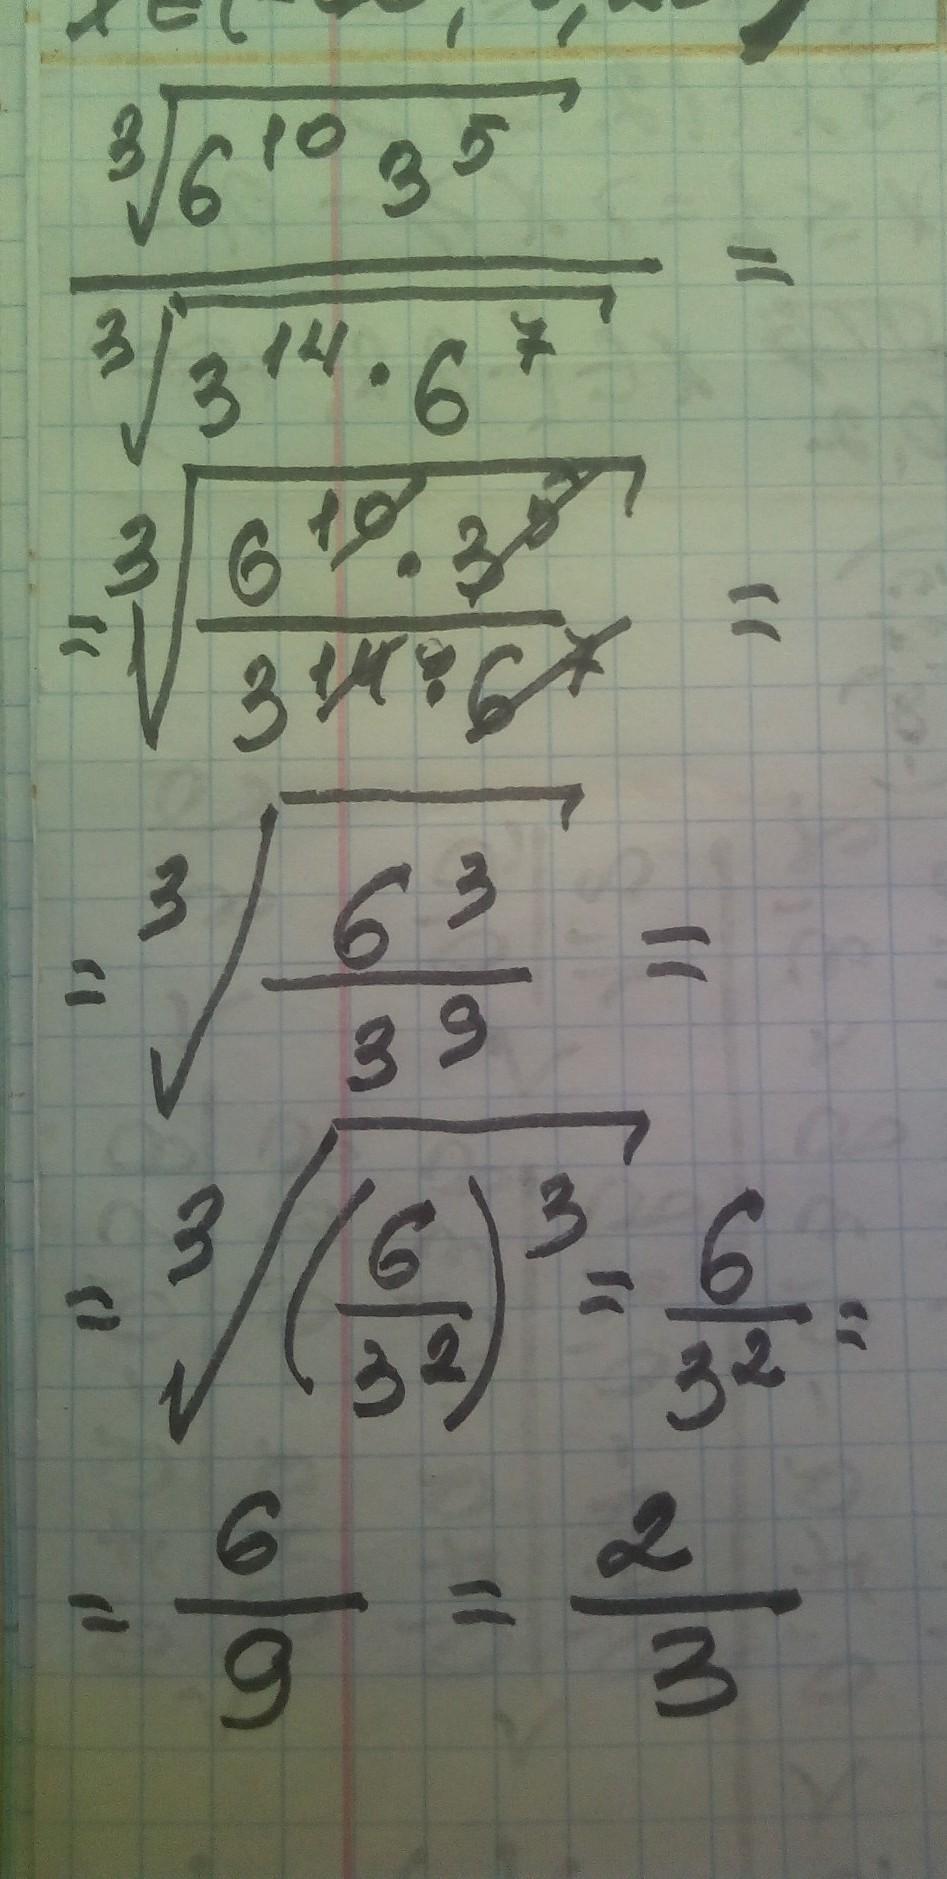 ∛(6¹⁰ 3⁵)
/ =
∛(3¹⁴ · 6⁷)
= ∛((6¹⁰ · 3⁵)/(3¹⁴ · 6⁷)) =
= ∛(6³/3⁹) =
= ∛((6/3²)³) = 6/3² =
= 6/9 = 2/3